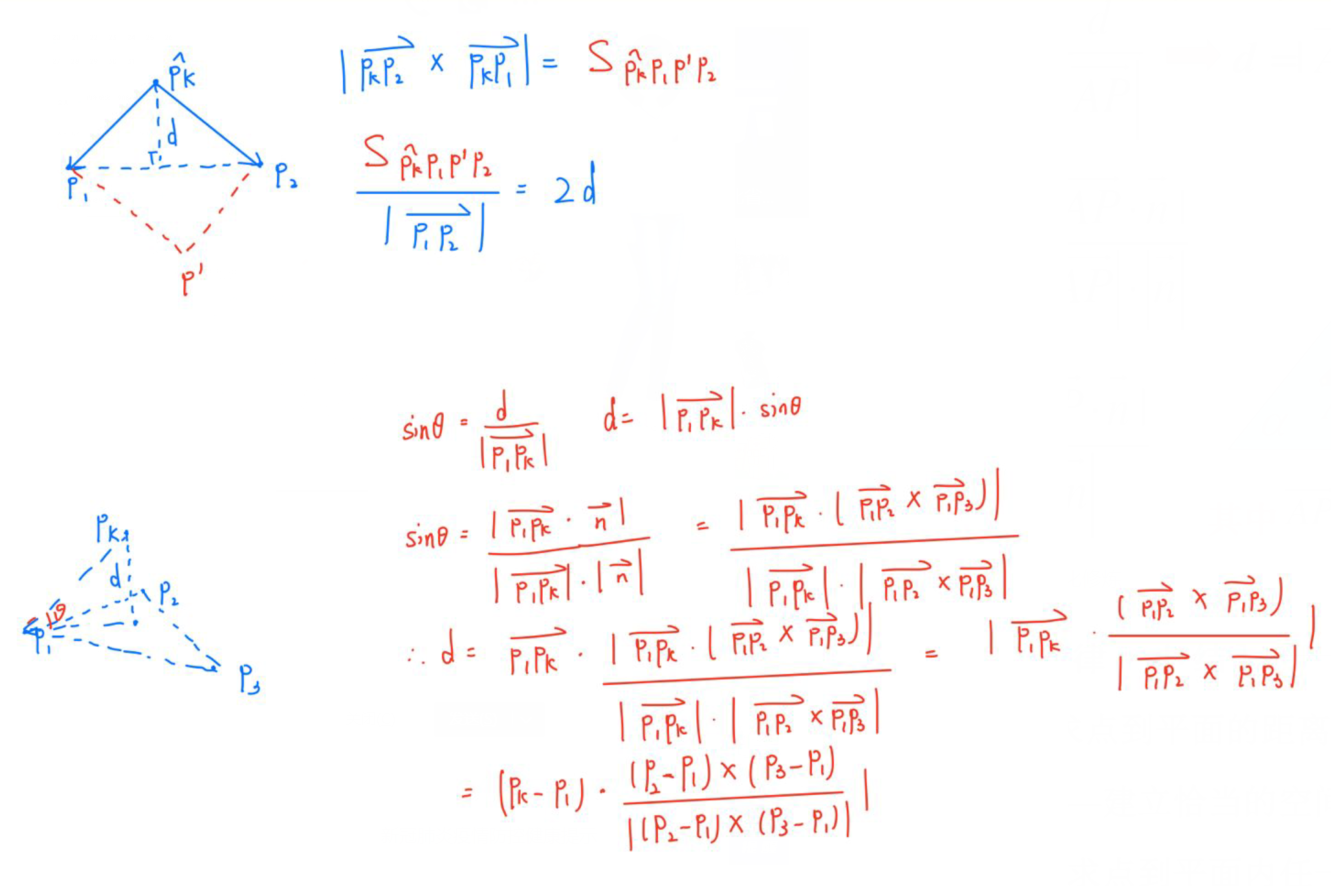 p̂k
d
P₁ P₂
P'
|→PkP₂ × →PkP₁| = S p̂k P₁ P' P₂
S p̂k P₁ P' P₂ / |→P₁P₂| = 2d
sinθ = d / |→P₁Pk|    d = |→P₁Pk| · sinθ
sinθ = |→P₁Pk · →n| / |→P₁Pk| · |→n| = |→P₁Pk · (→P₁P₂ × →P₁P₃)| / |→P₁Pk| · |→P₁P₂ × →P₁P₃|
Pk
d
θ
P₂
P₁
P₃
∴ d = →P₁Pk · |→P₁Pk · (→P₁P₂ × →P₁P₃)| / |→P₁Pk| · |→P₁P₂ × →P₁P₃| = |→P₁Pk · (→P₁P₂ × →P₁P₃) / |→P₁P₂ × →P₁P₃||
= (Pk - P₁) · (P₂-P₁) × (P₃-P₁) / |(P₂-P₁) × (P₃-P₁)||